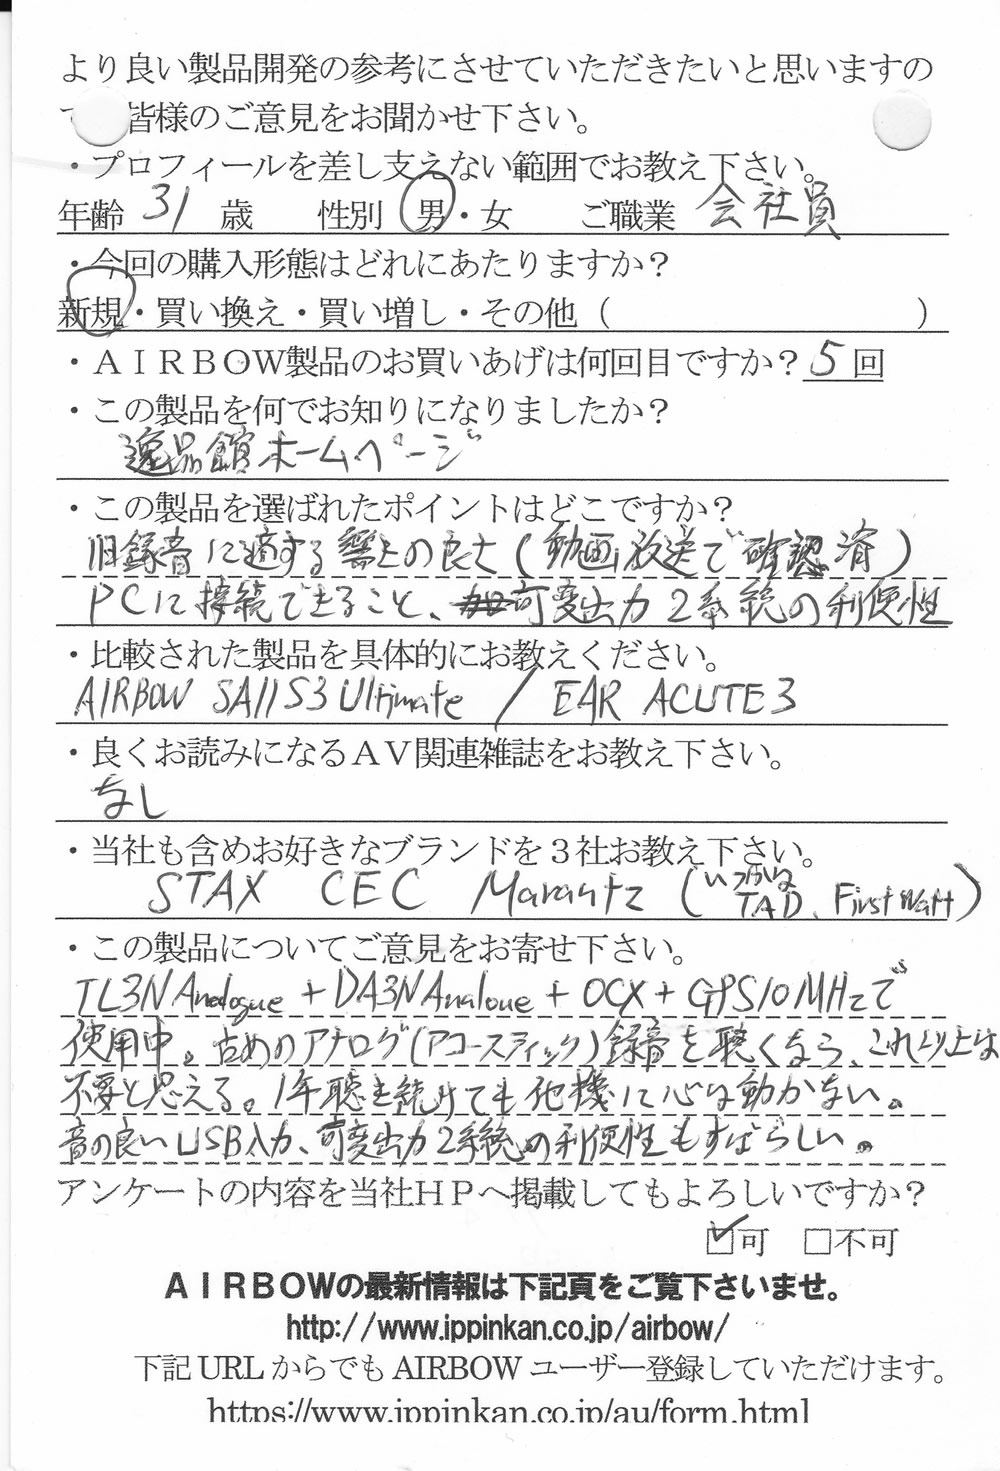 より良い製品開発の参考にさせていただきたいと思いますの
で 皆様のご意見をお聞かせ下さい。
・プロフィールを差し支えない範囲でお教え下さい。
年齢 31 歳 性別 男・女 ご職業 会社員
・今回の購入形態はどれにあたりますか？
新規・買い換え・買い増し・その他（ ）
・ＡＩＲＢＯＷ製品のお買いあげは何回目ですか？ 5 回
・この製品を何でお知りになりましたか？
逸品館ホームページ
・この製品を選ばれたポイントはどこですか？
旧録音に適する響きの良さ(動画放送で確認済)
PCに接続できること、可変出力2系統の利便性
・比較された製品を具体的にお教えください。
AIRBOW SA11S3 Ultimate / EAR ACUTE3
・良くお読みになるＡＶ関連雑誌をお教え下さい。
なし
・当社も含めお好きなブランドを３社お教え下さい。
STAX CEC Marantz (いつかは TAD、First Watt)
・この製品についてご意見をお寄せ下さい。
TL3N Analogue + DA3N Analoue + OCX + GPS10MHzで
使用中。古めのアナログ(アコースティック)録音を聴くなら、これ以上は
不要と思える。1年聴き続けても他機に心は動かない。
音の良いUSB入力、可変出力2系統の利便性もすばらしい。
アンケートの内容を当社ＨＰへ掲載してもよろしいですか？
☑可 □不可
ＡＩＲＢＯＷの最新情報は下記頁をご覧下さいませ。
http://www.ippinkan.co.jp/airbow/
下記 URL からでも AIRBOW ユーザー登録していただけます。
https://www.ippinkan.co.jp/au/form.html